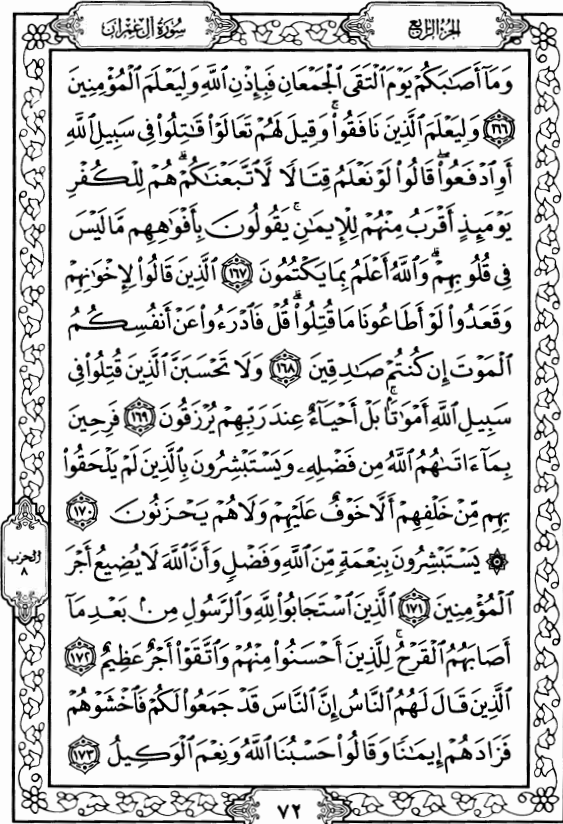 سُورَةُ آلِ عِمْرَانَ
الجُزْءُ الرَّابِعُ
وَمَآ أَصَٰبَكُمْ يَوْمَ ٱلْتَقَى ٱلْجَمْعَانِ فَبِإِذْنِ ٱللَّهِ وَلِيَعْلَمَ ٱلْمُؤْمِنِينَ
١٦٦ وَلِيَعْلَمَ ٱلَّذِينَ نَافَقُوا۟ ۚ وَقِيلَ لَهُمْ تَعَالَوْا۟ قَٰتِلُوا۟ فِى سَبِيلِ ٱللَّهِ
أَوِ ٱدْفَعُوا۟ ۖ قَالُوا۟ لَوْ نَعْلَمُ قِتَالًا لَّٱتَّبَعْنَٰكُمْ ۗ هُمْ لِلْكُفْرِ
يَوْمَئِذٍ أَقْرَبُ مِنْهُمْ لِلْإِيمَٰنِ ۚ يَقُولُونَ بِأَفْوَٰهِهِم مَّا لَيْسَ
فِى قُلُوبِهِمْ ۗ وَٱللَّهُ أَعْلَمُ بِمَا يَكْتُمُونَ ١٦٧ ٱلَّذِينَ قَالُوا۟ لِإِخْوَٰنِهِمْ
وَقَعَدُوا۟ لَوْ أَطَاعُونَا مَا قُتِلُوا۟ ۗ قُلْ فَٱدْرَءُوا۟ عَنْ أَنفُسِكُمُ
ٱلْمَوْتَ إِن كُنتُمْ صَٰدِقِينَ ١٦٨ وَلَا تَحْسَبَنَّ ٱلَّذِينَ قُتِلُوا۟ فِى
سَبِيلِ ٱللَّهِ أَمْوَٰتًۢا ۚ بَلْ أَحْيَآءٌ عِندَ رَبِّهِمْ يُرْزَقُونَ ١٦٩ فَرِحِينَ
بِمَآ ءَاتَىٰهُمُ ٱللَّهُ مِن فَضْلِهِۦ وَيَسْتَبْشِرُونَ بِٱلَّذِينَ لَمْ يَلْحَقُوا۟
بِهِم مِّنْ خَلْفِهِمْ أَلَّا خَوْفٌ عَلَيْهِمْ وَلَا هُمْ يَحْزَنُونَ ١٧٠
الحزب
٨
۞ يَسْتَبْشِرُونَ بِنِعْمَةٍ مِّنَ ٱللَّهِ وَفَضْلٍ وَأَنَّ ٱللَّهَ لَا يُضِيعُ أَجْرَ
ٱلْمُؤْمِنِينَ ١٧١ ٱلَّذِينَ ٱسْتَجَابُوا۟ لِلَّهِ وَٱلرَّسُولِ مِنۢ بَعْدِ مَآ
أَصَابَهُمُ ٱلْقَرْحُ ۚ لِلَّذِينَ أَحْسَنُوا۟ مِنْهُمْ وَٱتَّقَوْا۟ أَجْرٌ عَظِيمٌ ١٧٢
ٱلَّذِينَ قَالَ لَهُمُ ٱلنَّاسُ إِنَّ ٱلنَّاسَ قَدْ جَمَعُوا۟ لَكُمْ فَٱخْشَوْهُمْ
فَزَادَهُمْ إِيمَٰنًا وَقَالُوا۟ حَسْبُنَا ٱللَّهُ وَنِعْمَ ٱلْوَكِيلُ ١٧٣
٧٢